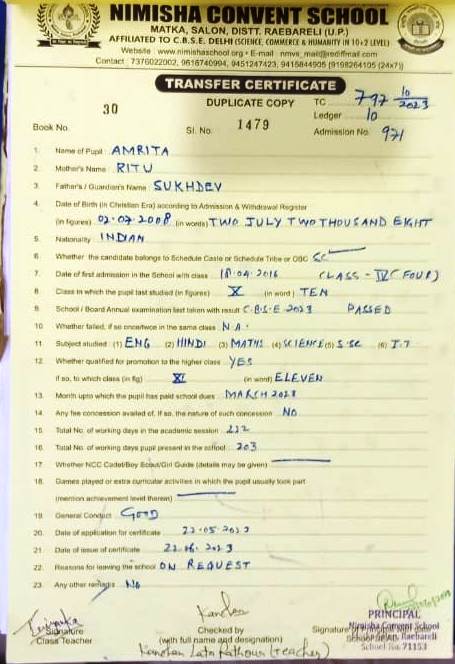 NIMISHA CONVENT SCHOOL
MATKA, SALON, DISTT. RAEBARELI (U.P.)
AFFILIATED TO C.B.S.E. DELHI (SCIENCE, COMMERCE & HUMANITY IN 10+2 LEVEL)
Website : www.nimishaschool.org • E-mail : nmvs_mail@rediffmail.com
Contact : 7376022002, 9616740994, 9451247423, 9415844905 [9198264105 (24x7)]
TRANSFER CERTIFICATE
DUPLICATE COPY
TC 797 10/2023
Ledger 10
Book No. 30 Sl. No. 1479 Admission No. 971
1. Name of Pupil : AMRITA
2. Mother's Name : RITU
3. Father's / Guardian's Name : SUKHDEV
4. Date of Birth (in Christian Era) according to Admission & Withdrawal Register
(in figures) 02.07.2008 (in words) TWO JULY TWO THOUSAND EIGHT
5. Nationality INDIAN
6. Whether the candidate belongs to Schedule Caste or Schedule Tribe or OBC SC
7. Date of first admission in the School with class 18.04.2016 (CLASS - IV (FOUR)
8. Class in which the pupil last studied (in figures) X (in word) TEN
9. School / Board Annual examination last taken with result C.B.S.E 2023 PASSED
10. Whether failed, if so once/twice in the same class N.A.
11. Subject studied : (1) ENG (2) HINDI (3) MATHS (4) SCIENCE (5) S.SC (6) I.T
12. Whether qualified for promotion to the higher class YES
If so, to which class (in fig) XI (in word) ELEVEN
13. Month upto which the pupil has paid school dues MARCH 2023
14. Any fee concession availed of. If so, the nature of such concession NO
15. Total No. of working days in the academic session 232
16. Total No. of working days pupil present in the school 203
17. Whether NCC Cadet/Boy Scout/Girl Guide (details may be given)
18. Games played or extra curricular activities in which the pupil usually took part
(mention achievement level therein)
19. General Conduct GOOD
20. Date of application for certificate 22.05.2023
21. Date of issue of certificate 22.06.2023
22. Reasons for leaving the school ON REQUEST
23. Any other remarks NO
Signature
Class Teacher
Checked by
(with full name and designation)
Kanchan Lata Rathour (teacher)
PRINCIPAL
Nimisha Convent School
School No. 71153